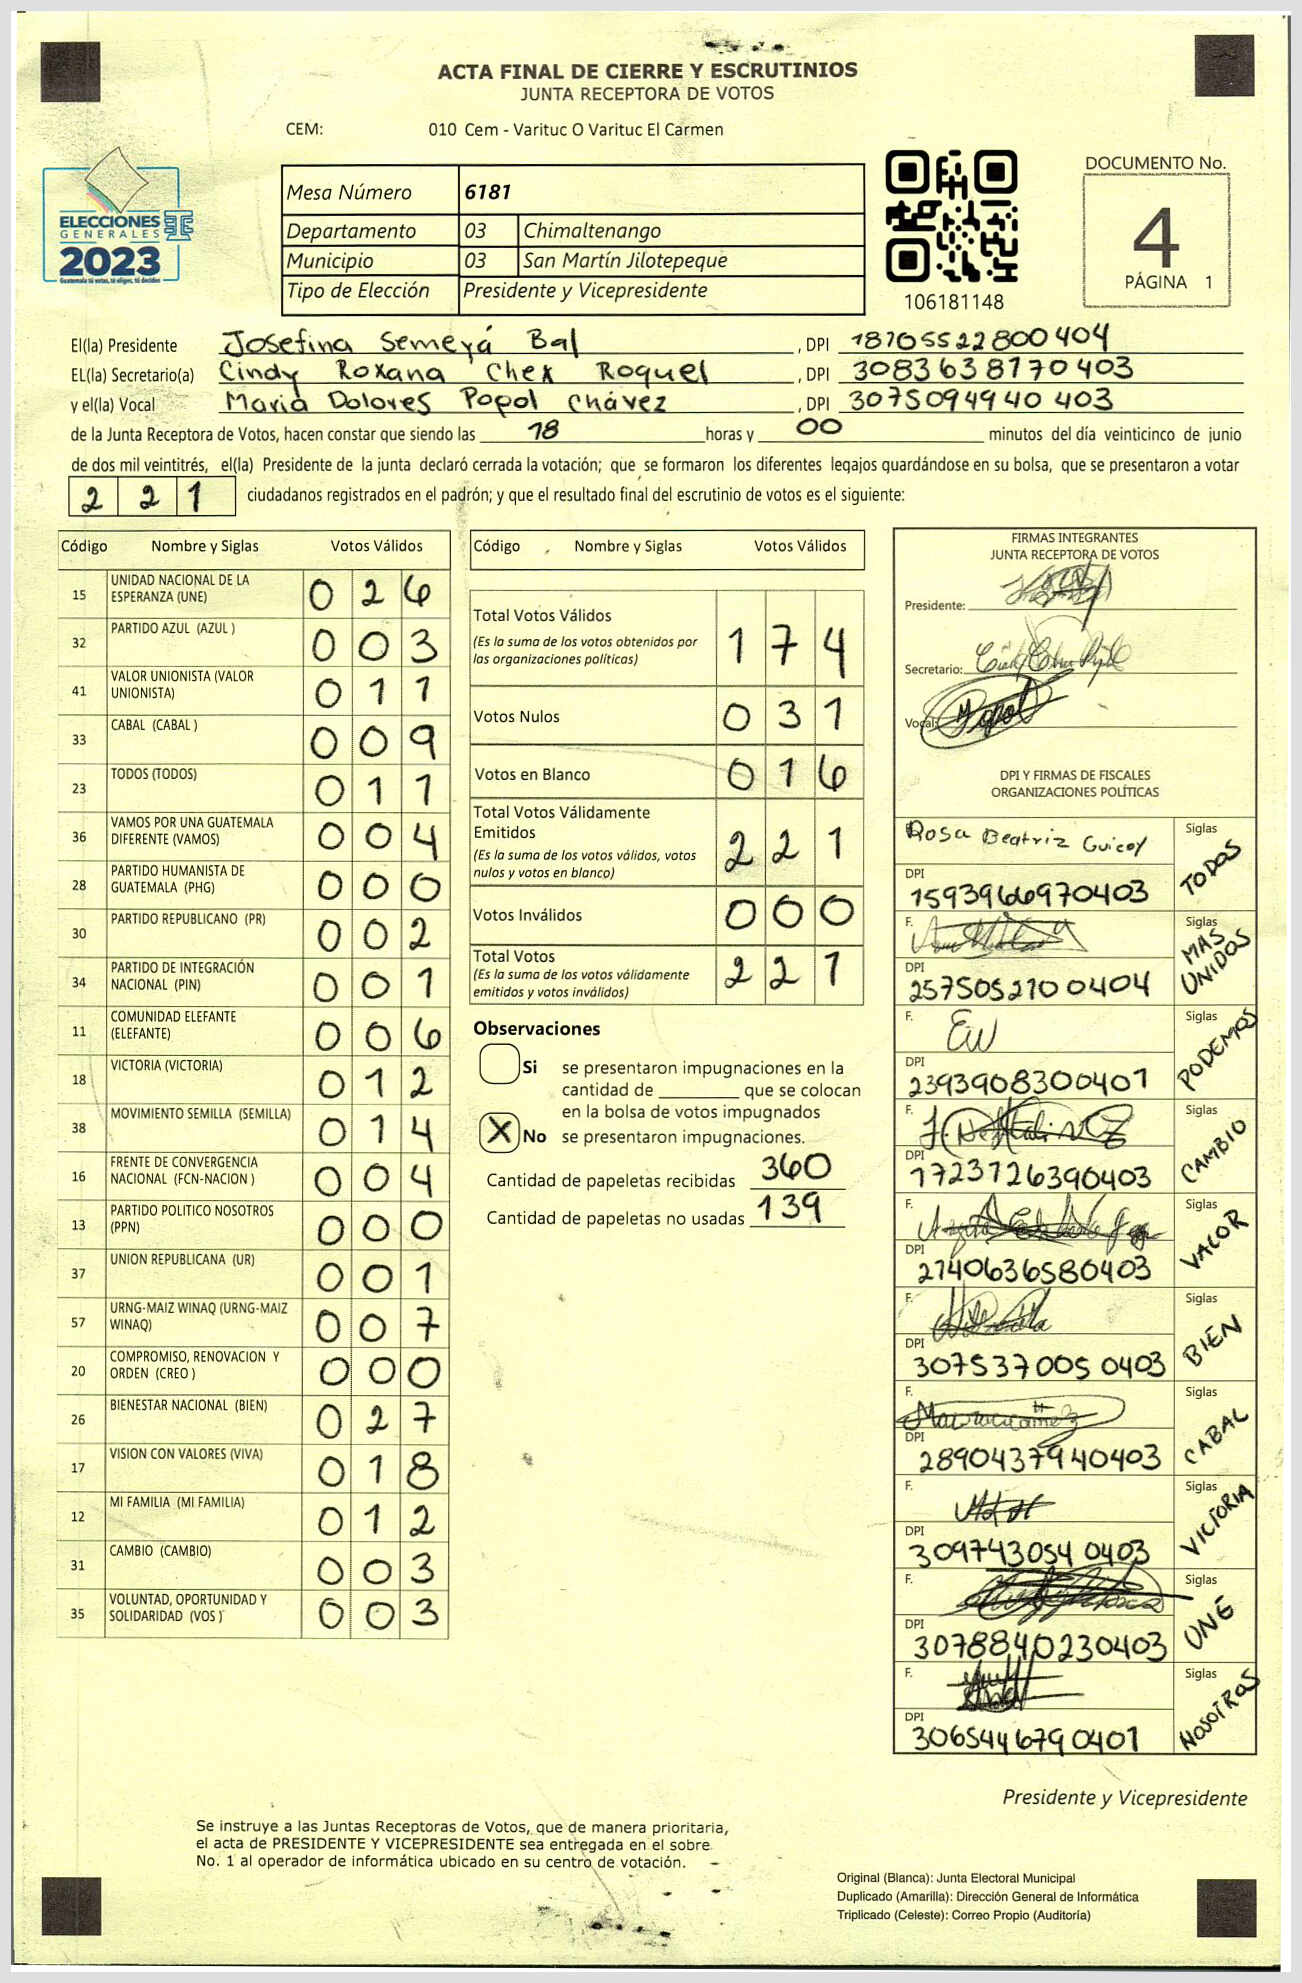 ACTA FINAL DE CIERRE Y ESCRUTINIOS
JUNTA RECEPTORA DE VOTOS
CEM: 010 Cem - Varituc O Varituc El Carmen
ELECCIONES
GENERALES
2023
Guatemala tú votas, tú eliges, tú decides
Mesa Número 6181
Departamento 03 Chimaltenango
Municipio 03 San Martín Jilotepeque
Tipo de Elección Presidente y Vicepresidente
106181148
DOCUMENTO No.
4
PÁGINA 1
El(la) Presidente Josefina Semeyá Bal, DPI 18705522800404
EL(la) Secretario(a) Cindy Roxana Chex Roquel, DPI 3083638170403
y el(la) Vocal Maria Dolores Popol Chávez, DPI 3075094940403
de la Junta Receptora de Votos, hacen constar que siendo las 18 horas y 00 minutos del día veinticinco de junio
de dos mil veintitrés, el(la) Presidente de la junta declaró cerrada la votación; que se formaron los diferentes legajos guardándose en su bolsa, que se presentaron a votar
221 ciudadanos registrados en el padrón; y que el resultado final del escrutinio de votos es el siguiente:
Código Nombre y Siglas Votos Válidos
15 UNIDAD NACIONAL DE LA ESPERANZA (UNE) 026
32 PARTIDO AZUL (AZUL ) 003
41 VALOR UNIONISTA (VALOR UNIONISTA) 011
33 CABAL (CABAL ) 009
23 TODOS (TODOS) 011
36 VAMOS POR UNA GUATEMALA DIFERENTE (VAMOS) 004
28 PARTIDO HUMANISTA DE GUATEMALA (PHG) 000
30 PARTIDO REPUBLICANO (PR) 002
34 PARTIDO DE INTEGRACIÓN NACIONAL (PIN) 001
11 COMUNIDAD ELEFANTE (ELEFANTE) 006
18 VICTORIA (VICTORIA) 012
38 MOVIMIENTO SEMILLA (SEMILLA) 014
16 FRENTE DE CONVERGENCIA NACIONAL (FCN-NACION ) 004
13 PARTIDO POLITICO NOSOTROS (PPN) 000
37 UNION REPUBLICANA (UR) 001
57 URNG-MAIZ WINAQ (URNG-MAIZ WINAQ) 007
20 COMPROMISO, RENOVACION Y ORDEN (CREO ) 000
26 BIENESTAR NACIONAL (BIEN) 027
17 VISION CON VALORES (VIVA) 018
12 MI FAMILIA (MI FAMILIA) 012
31 CAMBIO (CAMBIO) 003
35 VOLUNTAD, OPORTUNIDAD Y SOLIDARIDAD (VOS ) 003
Código Nombre y Siglas Votos Válidos
Total Votos Válidos 174
(Es la suma de los votos obtenidos por
las organizaciones políticas)
Votos Nulos 031
Votos en Blanco 016
Total Votos Válidamente
Emitidos 221
(Es la suma de los votos válidos, votos
nulos y votos en blanco)
Votos Inválidos 000
Total Votos 221
(Es la suma de los votos válidamente
emitidos y votos inválidos)
Observaciones
Si se presentaron impugnaciones en la
cantidad de ________ que se colocan
en la bolsa de votos impugnados
X No se presentaron impugnaciones.
Cantidad de papeletas recibidas 360
Cantidad de papeletas no usadas 139
FIRMAS INTEGRANTES
JUNTA RECEPTORA DE VOTOS
Presidente:
Secretario:
Vocal: Popol
DPI Y FIRMAS DE FISCALES
ORGANIZACIONES POLÍTICAS
Rosa Beatriz Guicoy Siglas TODOS
DPI 1593966970403
F. Siglas MAS UNIDOS
DPI 2575052100404
F. EW Siglas PODEMOS
DPI 2393908300401
F. Siglas CAMBIO
DPI 1723126390403
F. Siglas VALOR
DPI 2740636580403
F. Siglas BIEN
DPI 3075370050403
F. Siglas CABAL
DPI 2890437940403
F. Siglas VICTORIA
DPI 3097430540403
F. Siglas UNE
DPI 3078840230403
F. Siglas NOSOTROS
DPI 3065446790401
Presidente y Vicepresidente
Se instruye a las Juntas Receptoras de Votos, que de manera prioritaria,
el acta de PRESIDENTE Y VICEPRESIDENTE sea entregada en el sobre
No. 1 al operador de informática ubicado en su centro de votación.
Original (Blanca): Junta Electoral Municipal
Duplicado (Amarilla): Dirección General de Informática
Triplicado (Celeste): Correo Propio (Auditoría)